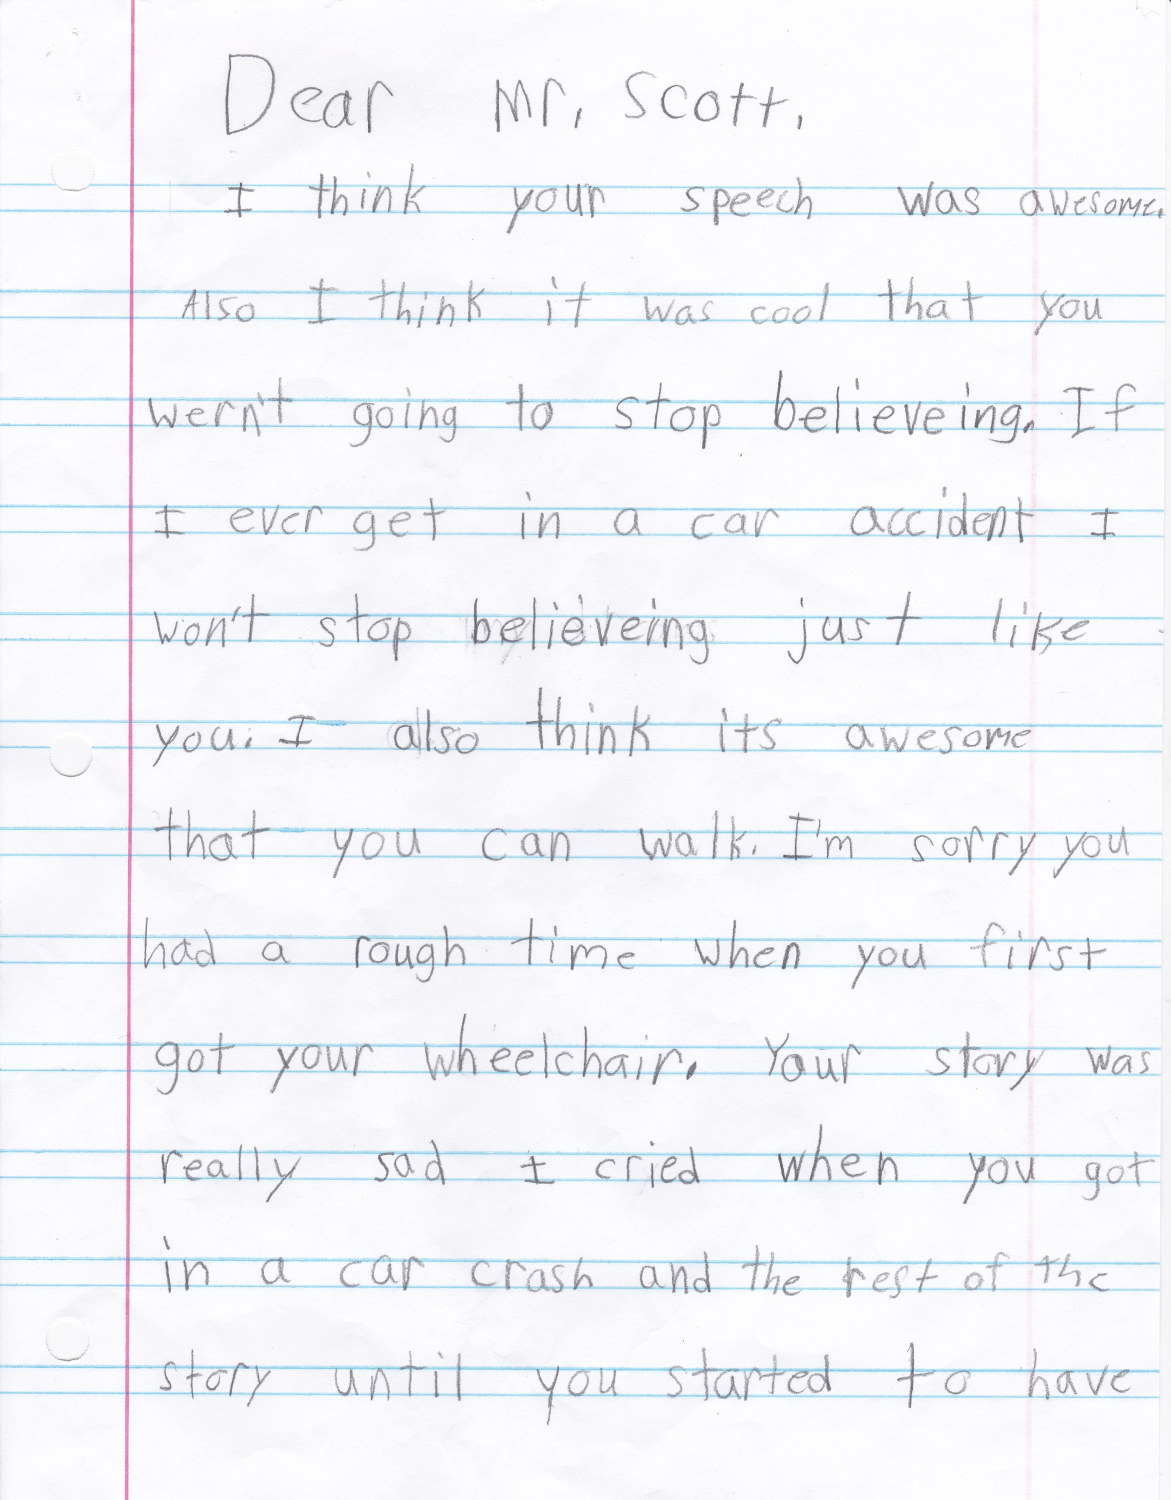 Dear Mr. Scott,
I think your speech was awesome.
Also I think it was cool that you
wern't going to stop believeing. If
I ever get in a car accident I
won't stop believeing just like
you. I also think its awesome
that you can walk. I'm sorry you
had a rough time when you first
got your wheelchair. Your story was
really sad I cried when you got
in a car crash and the rest of the
story until you started to have